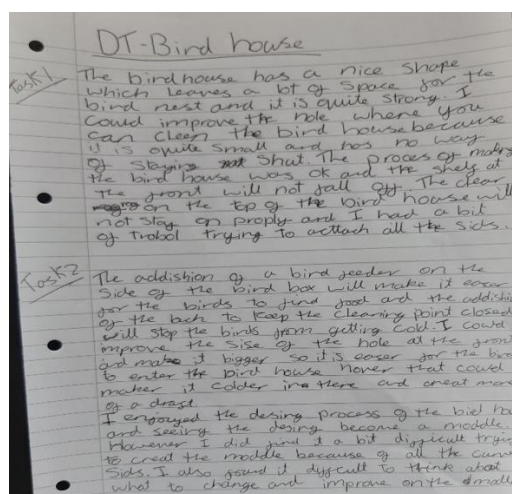 DT-Bird house
Task1
The birdhouse has a nice shape
which leaves a lot of space for the
bird nest and it is quite strong. I
could improve the hole where you
can cleen the bird house because
it is quite small and has no way
of staying shut. The proces of making
the bird house was ok and the shelf at
the front will not fall off. The clear
on the top of the bird house will
not stay on proply and I had a bit
of trobol trying to acttach all the sids.
Task2
The addishion of a bird feeder on the
side of the bird box will make it easer
for the birds to find food and the addishi
of the to keep the cleaning point closed
will stop the birds from getting cold. I could
improve the sise of the hole at the front
and make it bigger so it is easer for the bird
to enter the bird house hover that could
maker it colder in there and creat more
of a draft.
I enjoyed the desing process of the bird hou
and seeing the desing become a moddle.
However I did find it a bit difficult trying
to creat the moddle because of all the curve
sids. I also found it dyfcult to think about
what to change and improve on the small